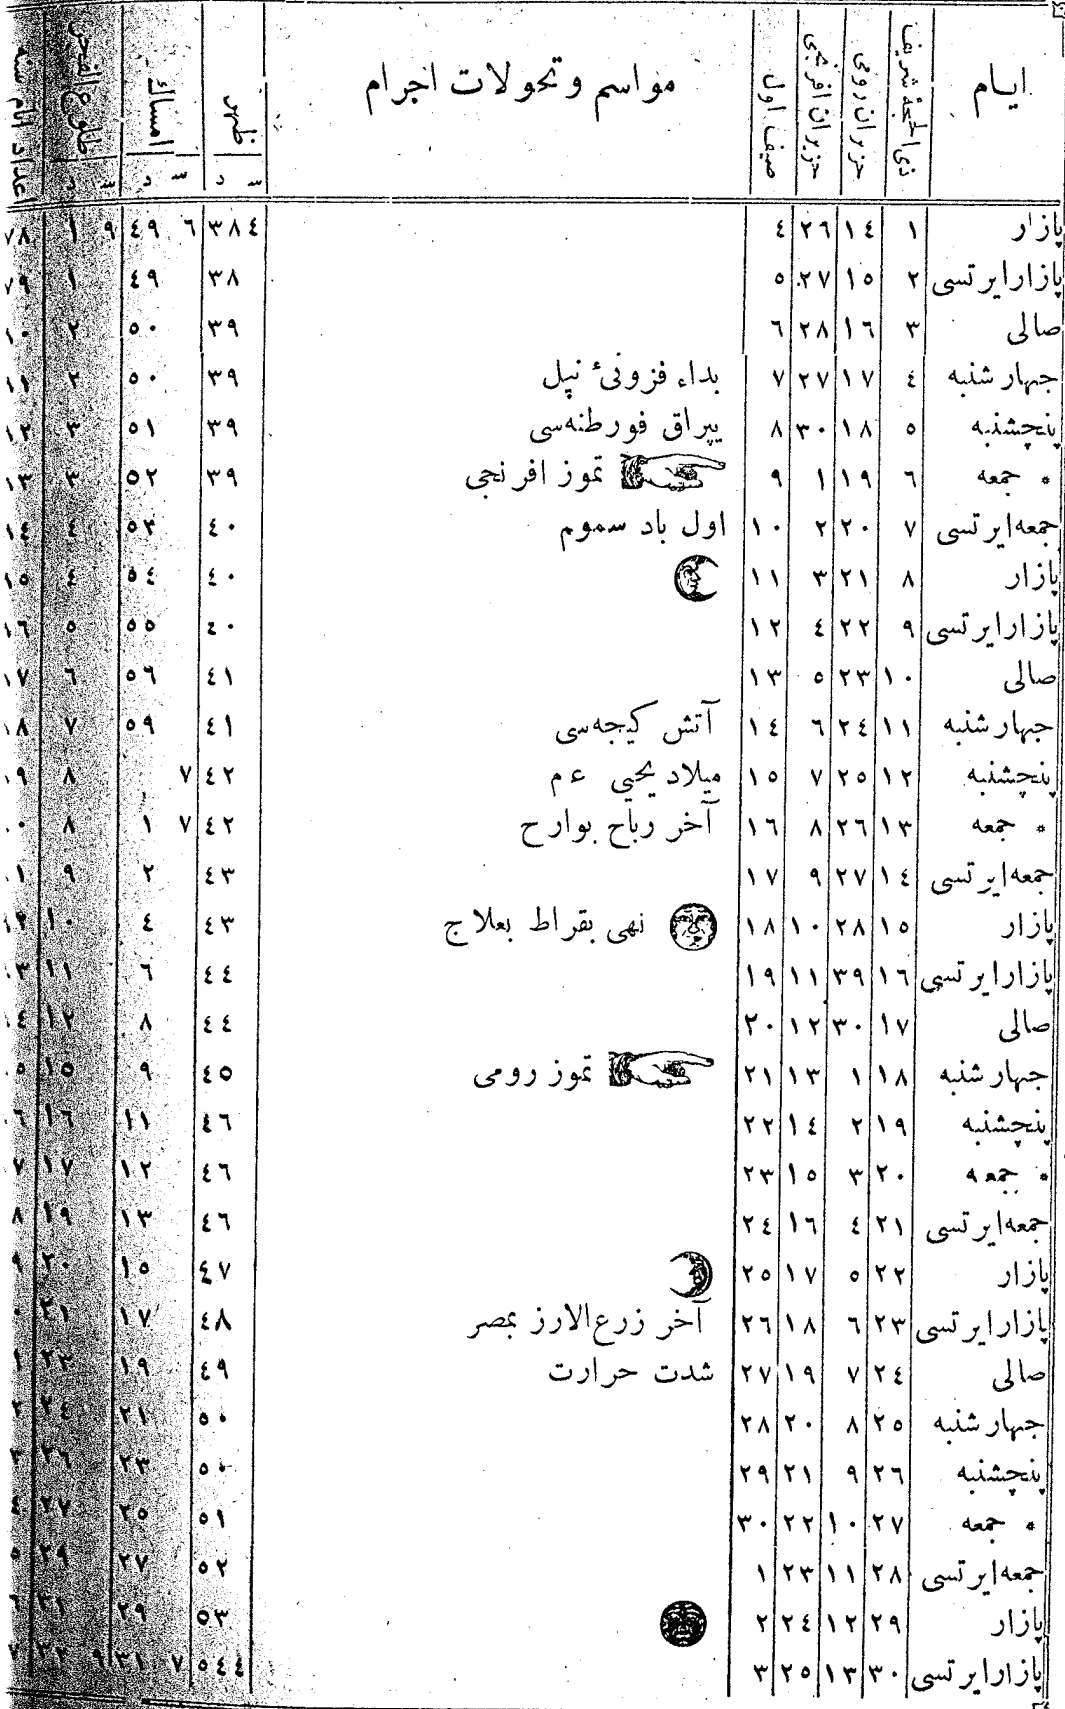 ایام ذی الحجهٔ شریف حزیران رومی حزیران افرنجی صیف اول مواسم و تحولات اجرام ظهر امساك طلوع الفجر اعداد ایام سنه
س د س د س د
پازار ١ ١٤ ٢٦ ٤ ٤ ٣٨ ٦ ٤٩ ٩ ١
پازارایرتسی ٢ ١٥ ٢٧ ٥ ٣٨ ٤٩ ١
صالی ٣ ١٦ ٢٨ ٦ ٣٩ ٥٠ ٢
جهارشنبه ٤ ١٧ ٢٧ ٧ بداء فزونیٔ نیل ٣٩ ٥٠ ٢
پنچشنبه ٥ ١٨ ٣٠ ٨ پیراق فورطنه‌سی ٣٩ ٥١ ٣
* جمعه ٦ ١٩ ١ ٩ تموز افرنجی ٣٩ ٥٢ ٣
جمعه‌ایرتسی ٧ ٢٠ ٢ ١٠ اول باد سموم ٤٠ ٥٣ ٤
پازار ٨ ٢١ ٣ ١١ ٤٠ ٥٤ ٤
پازارایرتسی ٩ ٢٢ ٤ ١٢ ٤٠ ٥٥ ٥
صالی ١٠ ٢٣ ٥ ١٣ ٤١ ٥٦ ٦
جهارشنبه ١١ ٢٤ ٦ ١٤ آتش کیجه‌سی ٤١ ٥٩ ٧
پنچشنبه ١٢ ٢٥ ٧ ١٥ میلاد یحیی ع م ٤٢ ٧ ٨
* جمعه ١٣ ٢٦ ٨ ١٦ آخر ریاح بوارح ٤٢ ٧ ١ ٨
جمعه‌ایرتسی ١٤ ٢٧ ٩ ١٧ ٤٣ ٢ ٩
پازار ١٥ ٢٨ ١٠ ١٨ نهی بقراط بعلاج ٤٣ ٤ ١٠
پازارایرتسی ١٦ ٣٩ ١١ ١٩ ٤٤ ٦ ١١
صالی ١٧ ٣٠ ١٢ ٢٠ ٤٤ ٨ ١٢
جهارشنبه ١٨ ١ ١٣ ٢١ تموز رومی ٤٥ ٩ ١٥
پنچشنبه ١٩ ٢ ١٤ ٢٢ ٤٦ ١١ ١٦
* جمعه ٢٠ ٣ ١٥ ٢٣ ٤٦ ١٢ ١٧
جمعه‌ایرتسی ٢١ ٤ ١٦ ٢٤ ٤٦ ١٣ ١٩
پازار ٢٢ ٥ ١٧ ٢٥ ٤٧ ١٥ ٢٠
پازارایرتسی ٢٣ ٦ ١٨ ٢٦ آخر زرع‌الارز بمصر ٤٨ ١٧ ٢١
صالی ٢٤ ٧ ١٩ ٢٧ شدت حرارت ٤٩ ١٩ ٢٣
جهارشنبه ٢٥ ٨ ٢٠ ٢٨ ٥٠ ٢١ ٢٤
پنچشنبه ٢٦ ٩ ٢١ ٢٩ ٥٠ ٢٣ ٢٦
* جمعه ٢٧ ١٠ ٢٢ ٣٠ ٥١ ٢٥ ٢٧
جمعه‌ایرتسی ٢٨ ١١ ٢٣ ١ ٥٢ ٢٧ ٢٩
پازار ٢٩ ١٢ ٢٤ ٢ ٥٣ ٢٩ ٣١
پازارایرتسی ٣٠ ١٣ ٢٥ ٣ ٤ ٥٤ ٧ ٣١ ٩ ٣٢